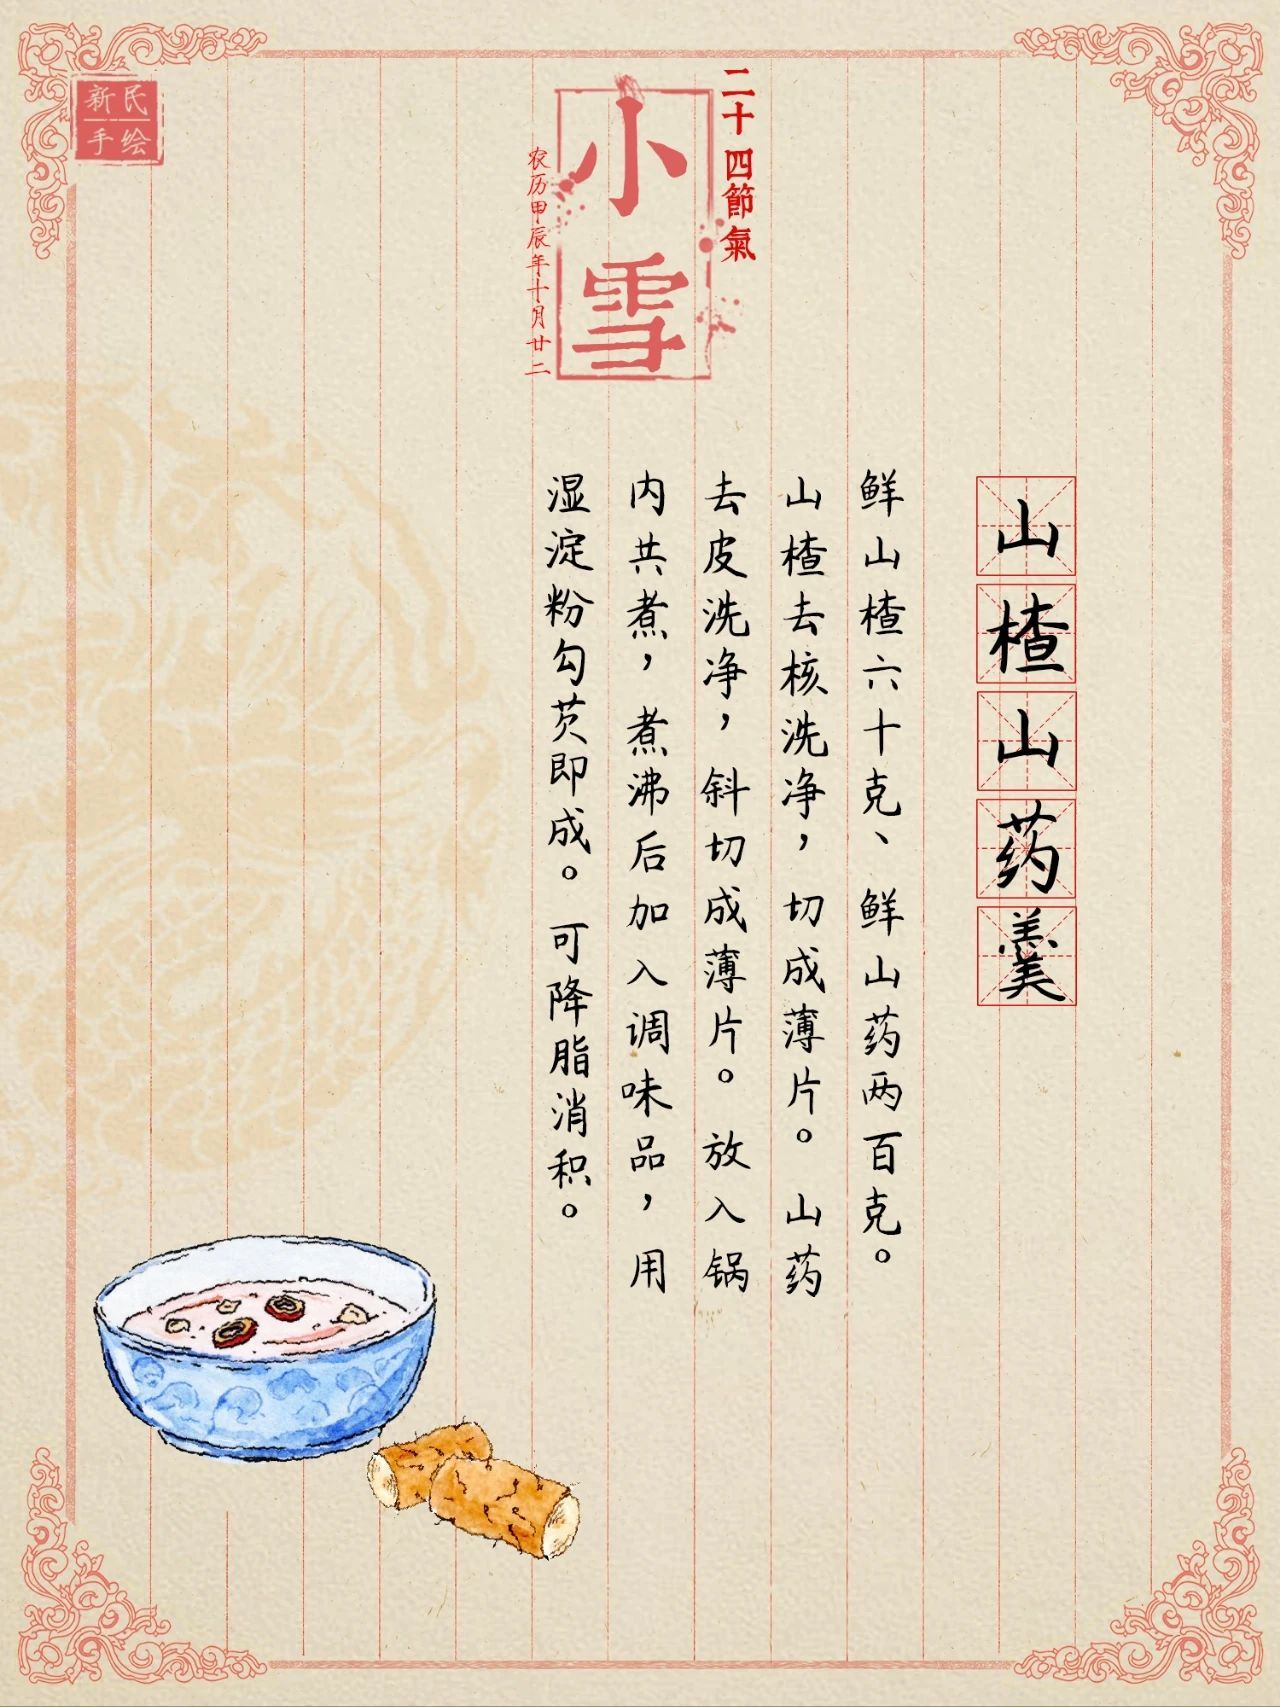 新民
手绘
二十四節氣
小雪
农历甲辰年十月廿二
山楂山药羹
鲜山楂六十克、鲜山药两百克。
山楂去核洗净，切成薄片。山药
去皮洗净，斜切成薄片。放入锅
内共煮，煮沸后加入调味品，用
湿淀粉勾芡即成。可降脂消积。